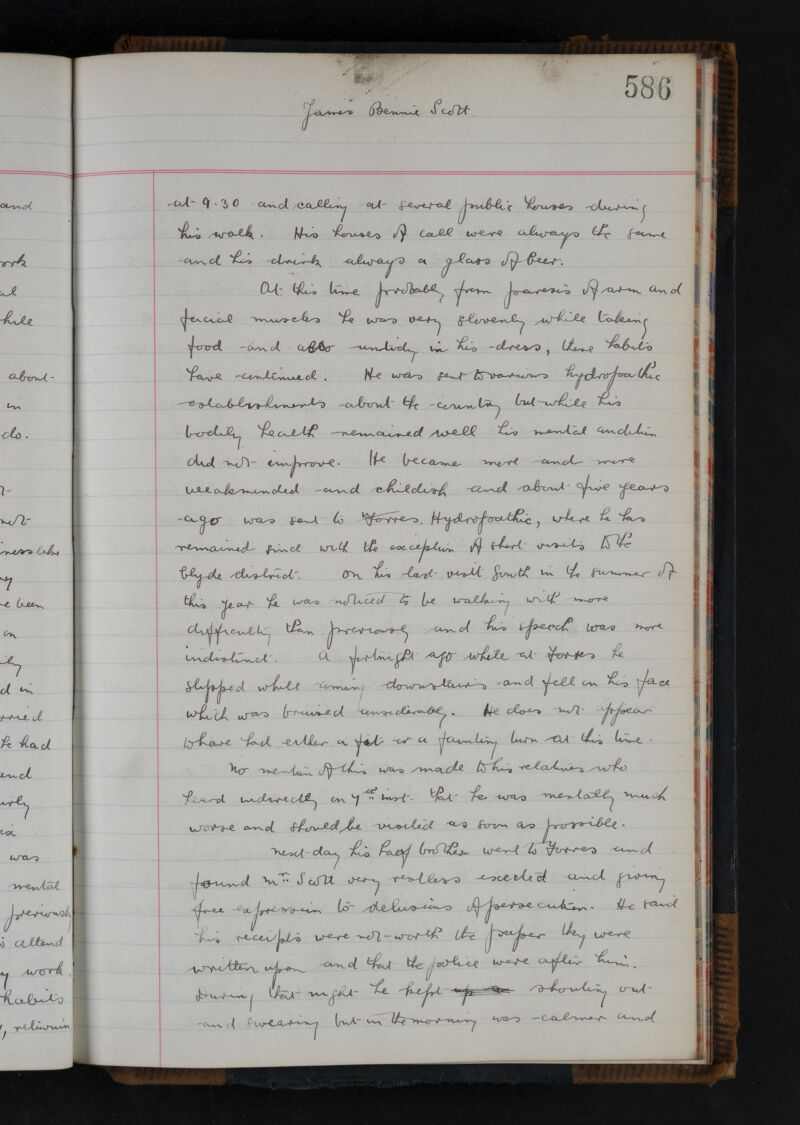 586
James Bennie Scott.
at 9.30 and calling at several public houses during
his walk. His houses of call were always the same
and his drink always a glass of beer.
At this time probably from paresis of arm and
facial muscles he was very slovenly while taking
food and also untidy in his dress, these habits
have continued. He was sent to various hydropathic
establishments about the country but while his
bodily health remained well his mental condition
did not improve. He became more and more
weakminded and childish and about five years
ago was sent to Forres Hydropathic, where he has
remained since with the exception of short visits to the
Clyde district. On his last visit South in the summer of
this year he was noticed to be walking with more
difficulty than previously and his speech was more
indistinct. A fortnight ago while at Forres he
slipped while coming downstairs and fell on his face
which was bruised considerably. He does not appear
to have had either a fit or a fainting turn at this time.
No mention of this was made to his relatives who
heard indirectly on 7th inst. that he was mentally much
worse and should be visited as soon as possible.
Next day his half brother went to Forres and
found Mr. Scott very restless excited and giving
free expression to delusions of persecution. He said
his receipts were not worth the paper they were
written upon and that the police were after him.
During that night he kept up a shouting out
and swearing but in the morning was calmer and
and
ork
al
hile
about
in
do.
not
ness like
e been
on
ily
d in
rried
he had
and
was
mental
previously
attend
y work.
habits